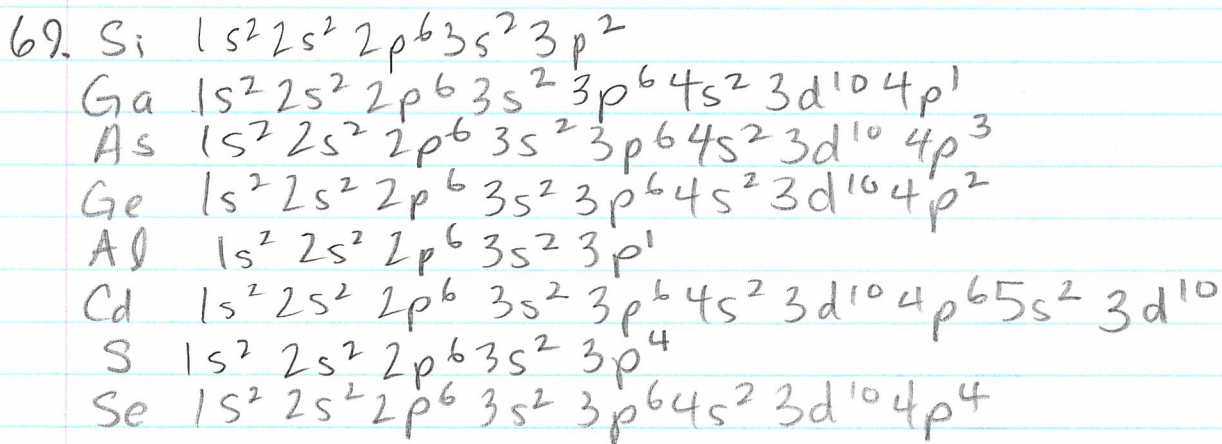 69. Si 1s² 2s² 2p⁶ 3s² 3p²
Ga 1s² 2s² 2p⁶ 3s² 3p⁶ 4s² 3d¹⁰ 4p¹
As 1s² 2s² 2p⁶ 3s² 3p⁶ 4s² 3d¹⁰ 4p³
Ge 1s² 2s² 2p⁶ 3s² 3p⁶ 4s² 3d¹⁰ 4p²
Al 1s² 2s² 2p⁶ 3s² 3p¹
Cd 1s² 2s² 2p⁶ 3s² 3p⁶ 4s² 3d¹⁰ 4p⁶ 5s² 3d¹⁰
S 1s² 2s² 2p⁶ 3s² 3p⁴
Se 1s² 2s² 2p⁶ 3s² 3p⁶ 4s² 3d¹⁰ 4p⁴